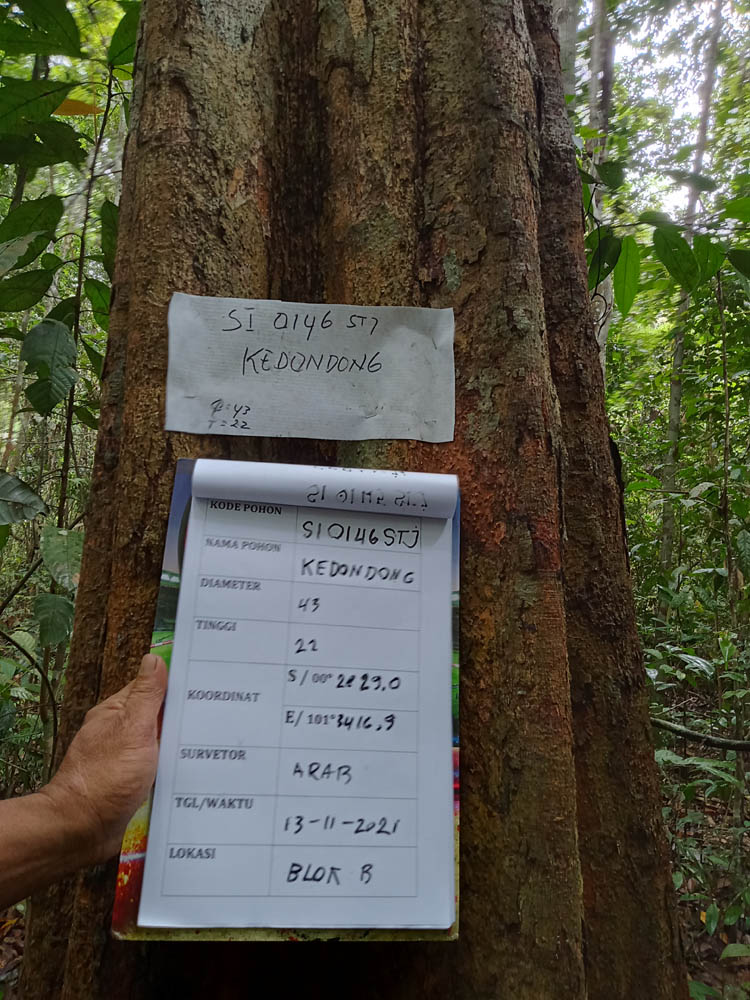 SI 0146 STJ
KEDONDONG
T = 22
KODE POHON SI 0146 STJ
NAMA POHON KEDONDONG
DIAMETER 43
TINGGI 22
KOORDINAT S / 00° 29,0
E/ 101°3416,9
SURVETOR ARAB
TGL/WAKTU 13-11-2021
LOKASI BLOK B